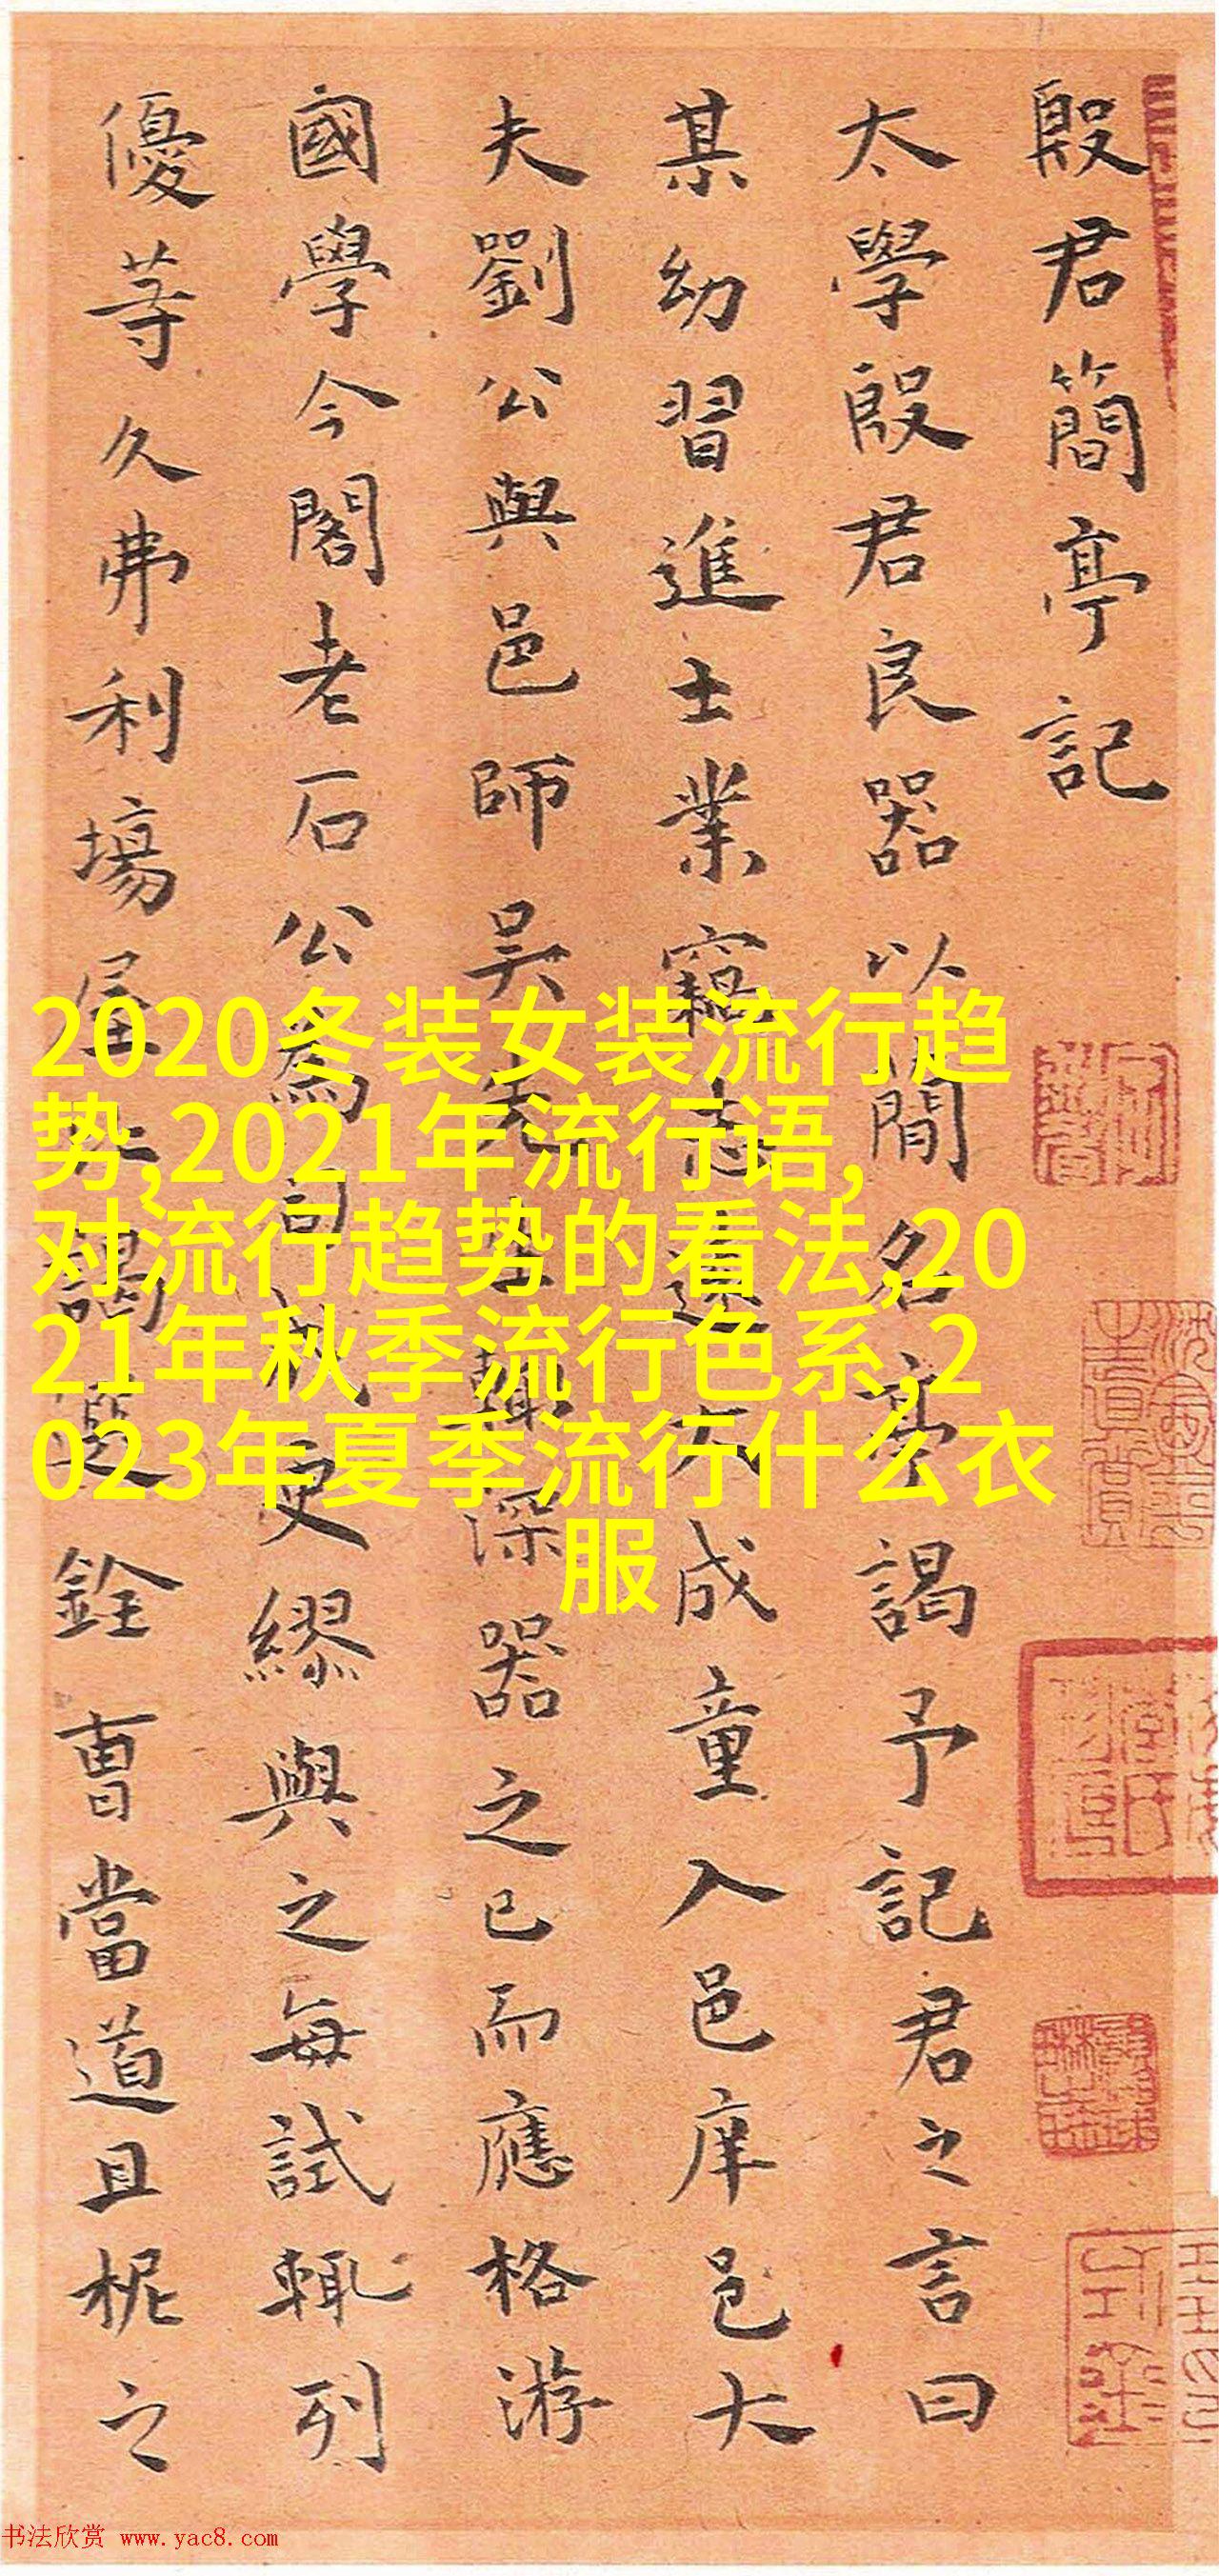 殷君簡亭記
太學殷君良器以簡名亭謁予記君之言曰
某幼習進士業竊志遠大成童入邑庠邑大
夫劉公與邑師吳先生輒深器之已而應格游
國學今閣老石公為司成更繆與之每試輒列
優等久弗利場屋謁選銓曹當道且柅之
2020冬装女装流行趋
势,2021年流行语,
对流行趋势的看法,20
21年秋季流行色系,2
023年夏季流行什么衣
服
书法欣赏 www.yac8.com